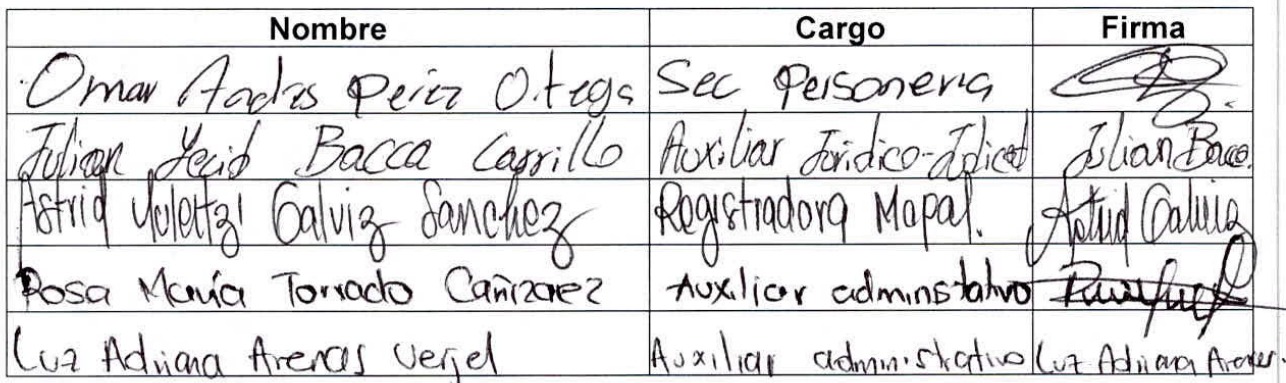 Nombre Cargo Firma
Omar Perez Ortega Sec Personeria
Julian Yecid Bacca Carrillo Auxiliar Juridico Julian Bacca
Astrid Galviz Sanchez Registradora Mapal. Astrid Galviz
Rosa María Torrado Cañizarez Auxiliar adminstativo
Luz Adriana Arenas Verjel Auxiliar administrativo Luz Adriana Arenas.